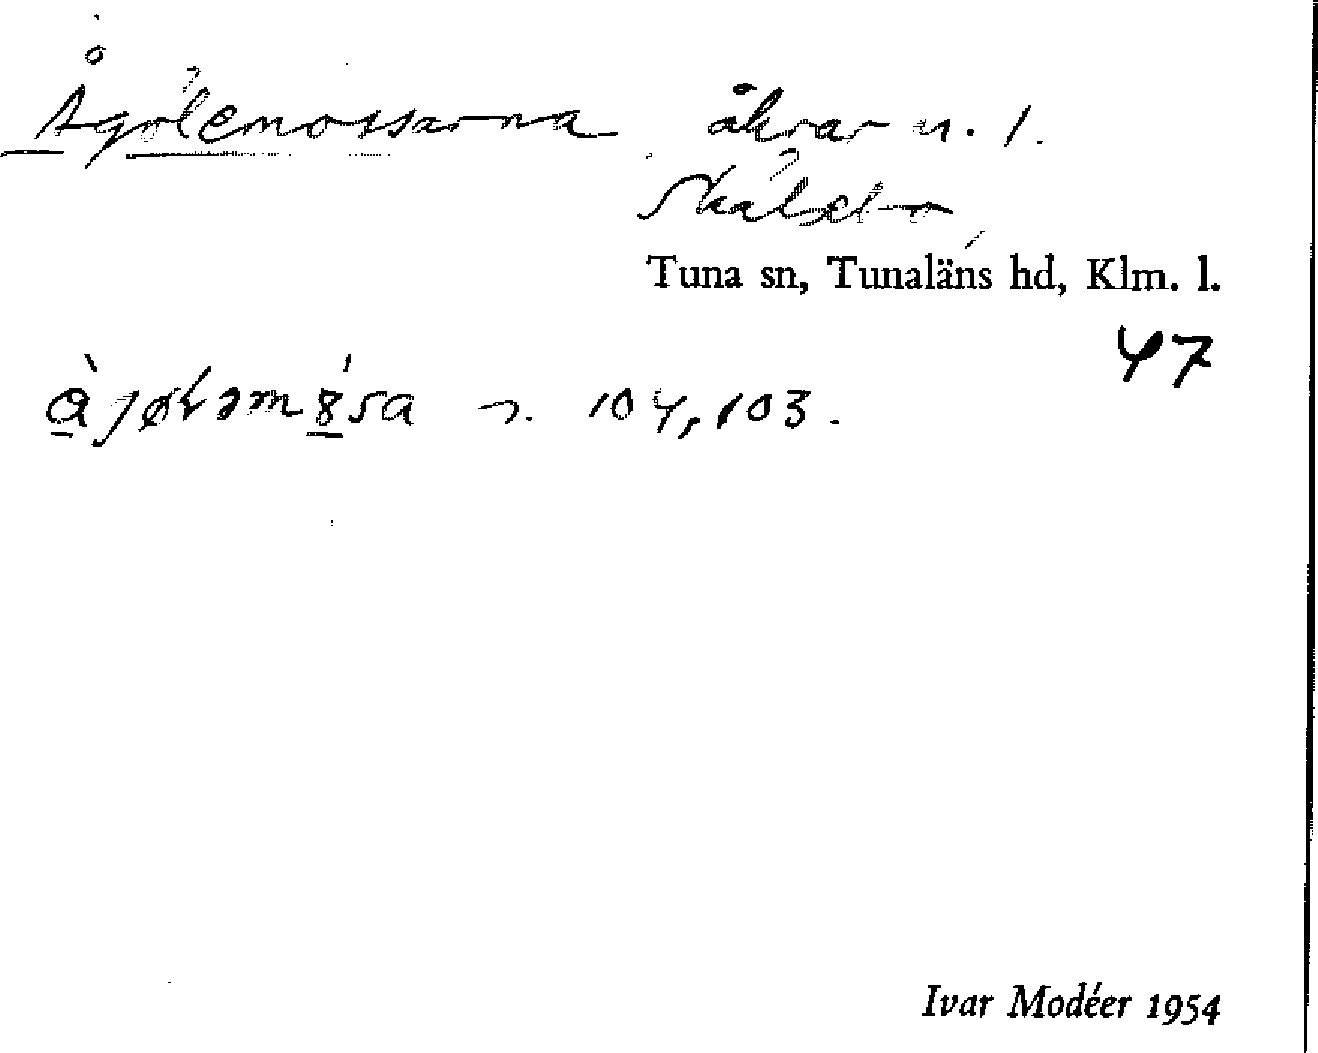 Ågölemossarna åkrar n. 1.
Skälsebo
Tuna sn, Tunaläns hd, Klm. l.
47
s. 104, 103.
Ivar Modéer 1954